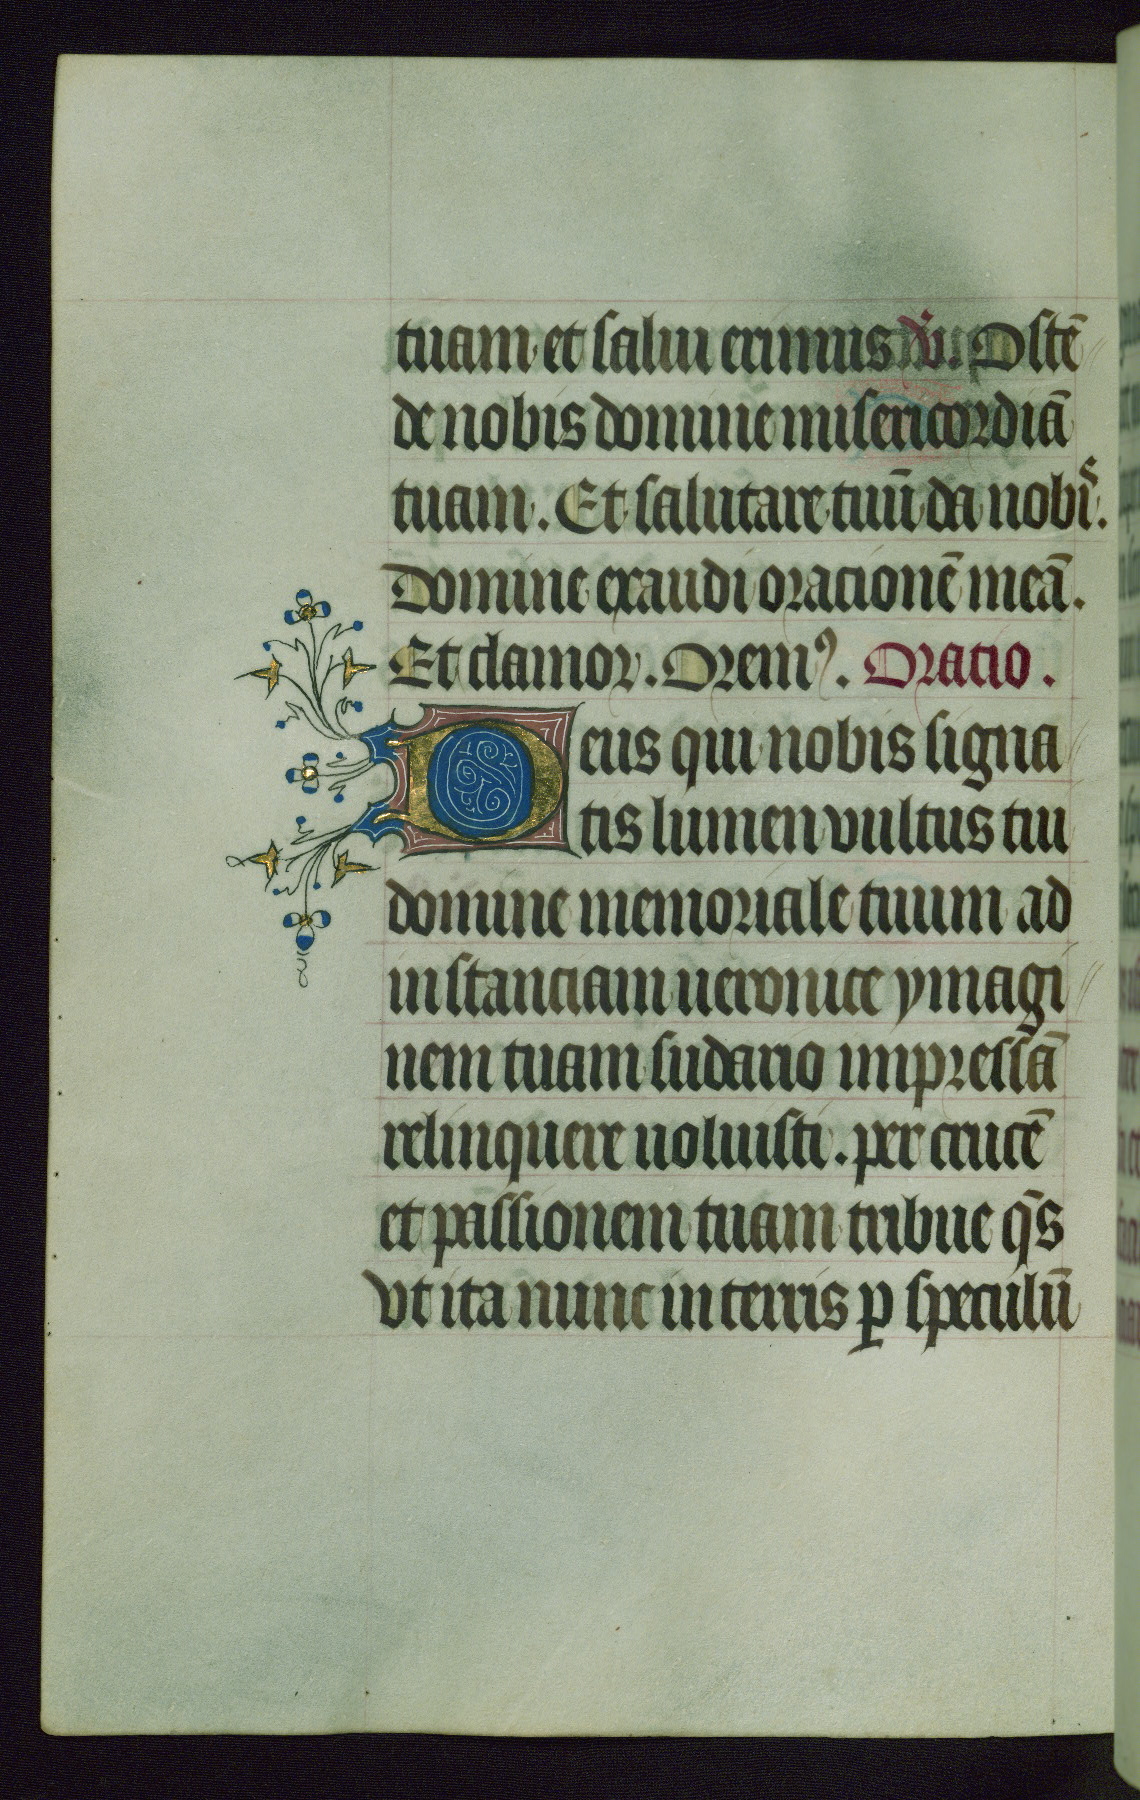 tuam et salui erimus v̇. Ostē
de nobis domine misericordiā
tuam. Et salutare tuū da nobis̄.
Domine exaudi orationē meā.
Et clamor. Orem⁹. Oratio.
Deus qui nobis signa
tis lumen vultus tui
domine memoriale tuum ad
instanciam ueronice ymagi
nem tuam sudario impressā
relinquere uoluisti. per crucē
et passionem tuam tribue q̄s
vt ita nunc in terris ꝑ speculū